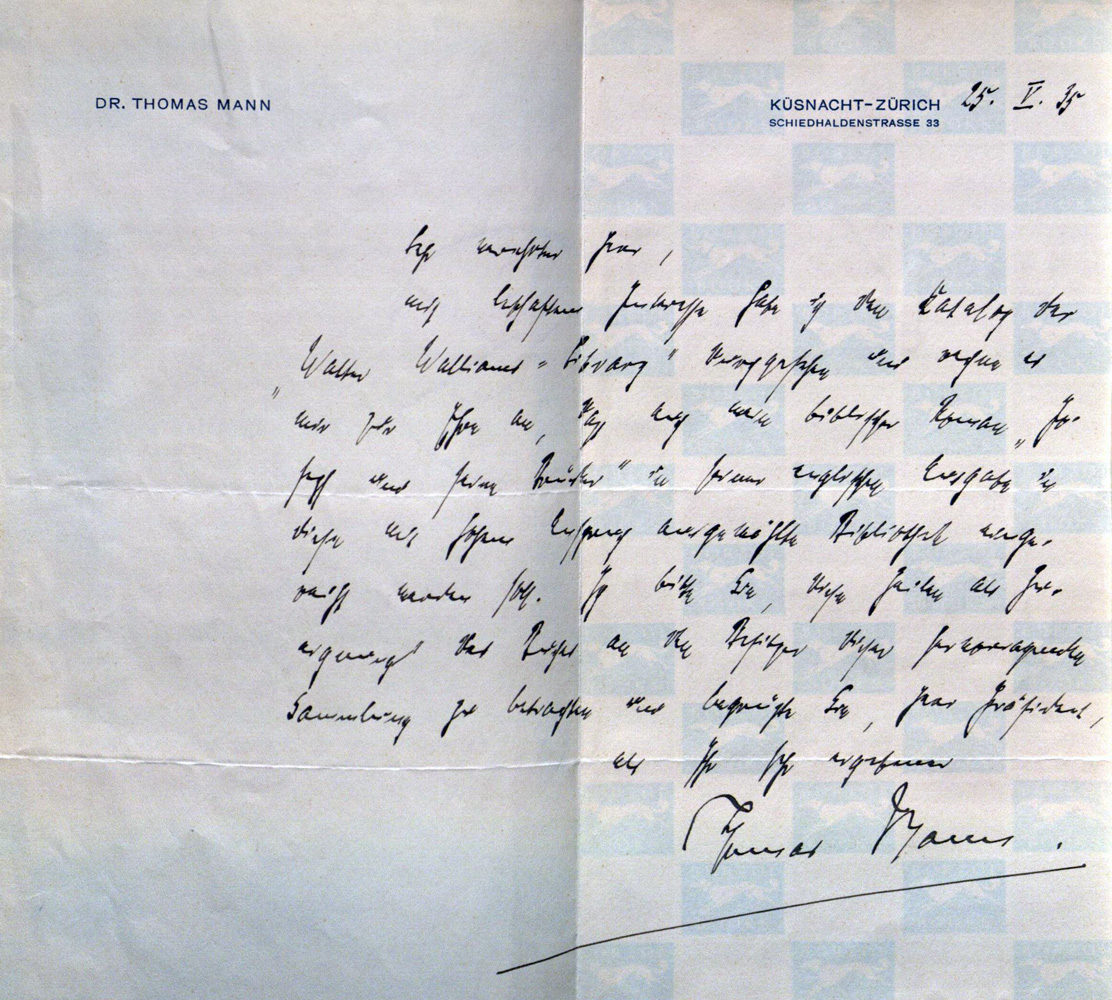 DR. THOMAS MANN
KÜSNACHT-ZÜRICH 25. V. 35
SCHIEDHALDENSTRASSE 33
Sehr verehrter Herr,
mit lebhaftem Interesse habe ich den Katalog der
„Walter Williams-Library“ durchgesehen und rechne es
mir zur Ehre an, daß auch mein biblischer Roman „Jo-
seph und seine Brüder“ in seiner englischen Ausgabe in
diese mit hohem Anspruch ausgewählte Bibliothek einge-
reiht werden soll. Ich bitte Sie, diese Zeilen als
des an den Besitzer dieser hervorragenden
Sammlung zu betrachten und begrüße Sie, Herr Präsident,
als Ihr sehr ergebener
Thomas Mann.